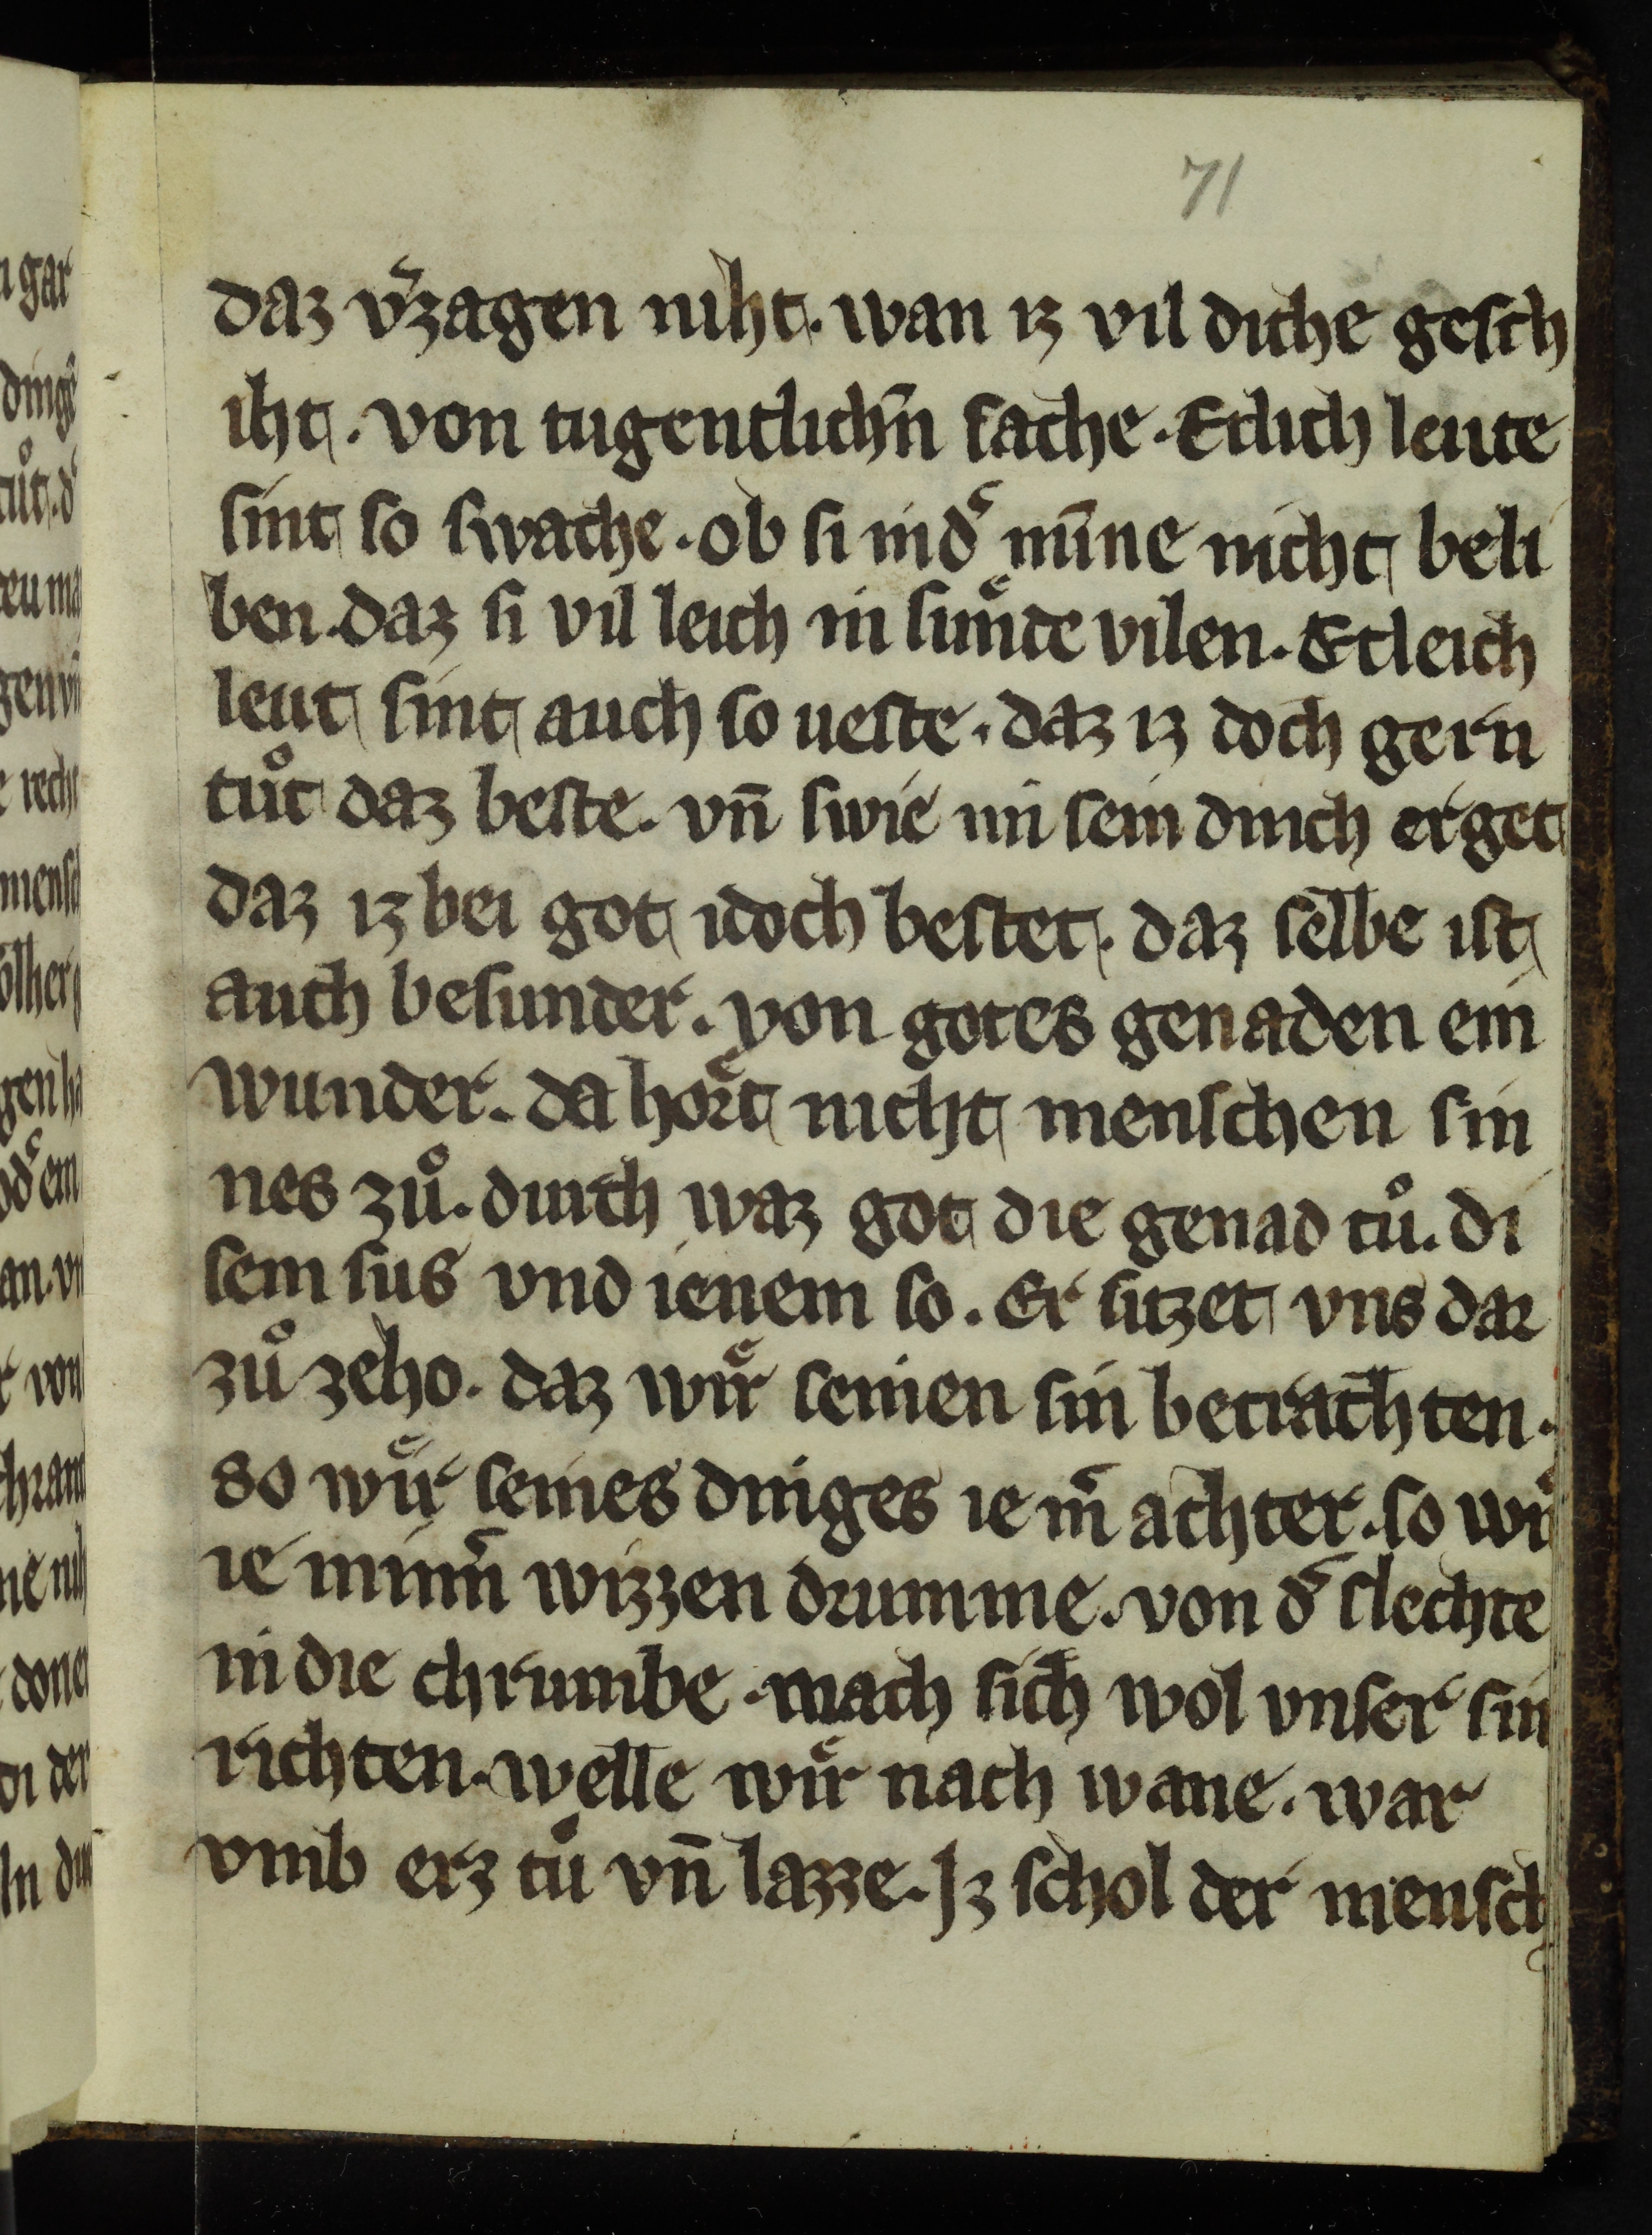 71
daz vˀzagen niht. wan iz vil diche gesch
iht. von tugentlichn̄ sache. Etlich leute
sint so swache. ob si in dˀ mīne nicht beli
ben. daz si vil leich in suͤnde vilen. Etleich
leut sint auch so ueste. daz iz doch gern
tuͦt daz beste. vn̄ swie im sein dinch erget
daz iz bei got idoch bestet. daz selbe ist
auch besunder. von gotes genaden ein
wunder. da hoͤrt nicht menschen sin
nes zuͦ. durch waz got die genad tuͦ. di
sem sus vnd ienem so. Er sitzet vns dar
zuͦ zeho. daz wiͤr seinen sin betrachten.
so wiͤr seines dinges ie mˀ achter. so wiͤr
ie minnˀ wizzen drumme. von dˀ slechte
in die chrumbe. mach sich wol vnser sin
richten. welle wiͤr nach wane. war
vmb erz tuͦ vn̄ lazze. Jz schol der mensch